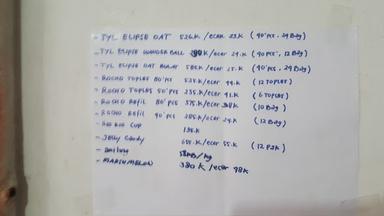 - TYL ELIPSE OAT 526.K /ECER 23K (40'pcs. 24Bdg)
- TYL ELIPSE WONDER BALL K/ecer 24.K (40 pcs, 12 Bdg)
- TYL ELIPSE OAT 585K/ecer 25.K (40'pcs. 24 Bdg)
- ROCHO TOPLES 80'pcs 525K/ecer 44.K (12 TOPLES)
- ROCHO TOPLES 50'pcs 235.K/ecer 41.K (6 TOPLES)
- ROCHO Refil 80'pcs 375.K/ecer 38K (10 Bdg)
- ROCHO Refil 40'pcs 285K/ecer 24K (12 Bdg)
- Cup 135.K
- Jelly Candy 655.K/ecer 55.K (12 PaK)
- 58KB/kg
- MARSHMELON 380 K/ecer 98K